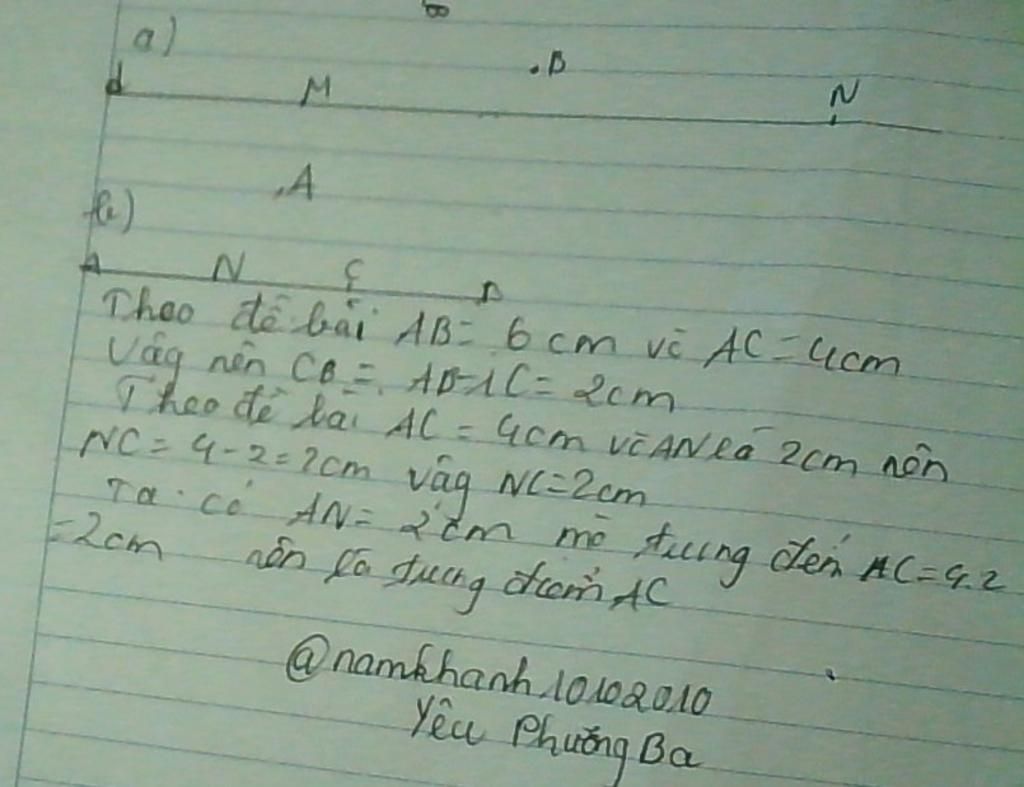 a)
.B
d M N
.A
b)
A N C B
Theo đề bài AB = 6 cm và AC = 4cm
Vậy nên CB = AB-AC = 2cm
Theo đề bài AC = 4cm và AN là 2cm nên
NC = 4-2=2cm vậy NC=2cm
Ta có AN = 2cm mà trung điểm AC=4:2
=2cm nên là trung điểm AC
@namkhanh10102010
Yêu Phương Ba